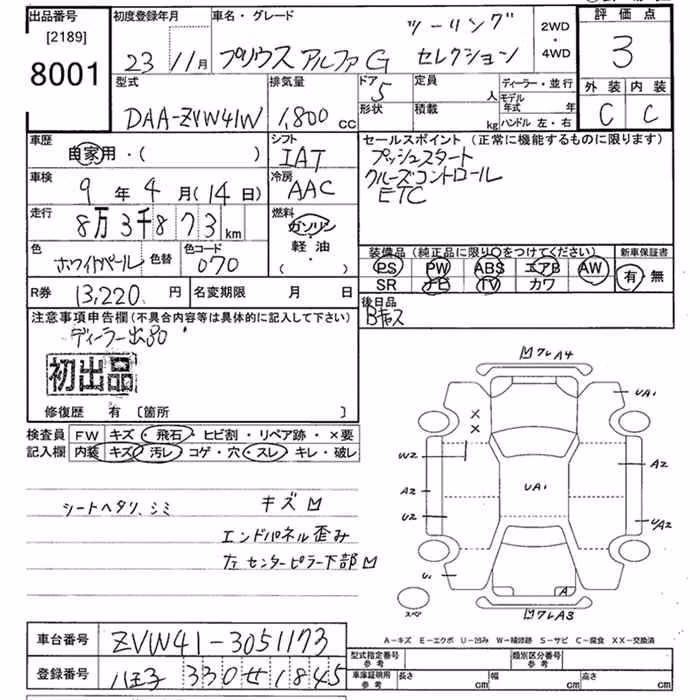 出品番号 [2189] 8001
初度登録年月 23 11月
車名・グレード プリウス アルファ G ツーリング セレクション
2WD ・ 4WD
評価点 3
外装 内装
C C
型式 DAA-ZVW41W
排気量 1,800 cc
ドア 5
形状
定員 人
積載 kg
ディーラー・並行
モデル年式 年
ハンドル 左・右
車歴 自家用・( )
シフト IAT
車検 9年 4月(14日)
冷房 AAC
走行 8万3千873 km
燃料 ガソリン・軽油・( )
色 ホワイトパール 色替
色コード 070
R券 13,220 円
名変期限 月 日
セールスポイント (正常に機能するものに限ります)
プッシュスタート
クルーズコントロール
ETC
装備品 (純正品に限り○をつけてください)
PS PW ABS エアB AW
SR ナビ TV カワ
新車保証書
有 無
後日品
Bキャス
注意事項申告欄 (不具合内容等は具体的に記入して下さい)
ディーラー出品
初出品
修復歴 有 [箇所 ]
検査員記入欄
FW キズ・飛石・ヒビ割・リペア跡・×要
内装 キズ・汚レ・コゲ・穴・スレ・キレ・破レ
シートヘタリ、シミ キズM
エンドパネル歪み
左センターピラー下部M
MワレA4
UA1
× ×
W2
A2
A2
UA1
U2
U/A2
U1
A
スペア
MワレA3
A-キズ E-エクボ U-凹み W-補修跡 S-サビ C-腐食 XX-交換済
車台番号 ZVW41-3051173
登録番号 八王子 330 せ 1845
型式指定番号 参考
類別区分番号 参考
車庫証明用 参考 長さ cm 幅 cm 高さ cm